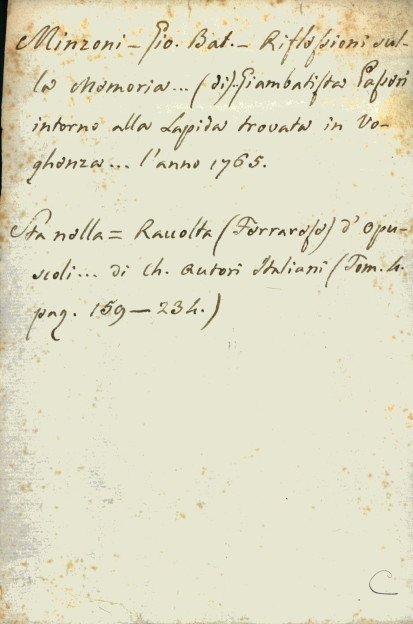 Minzoni - Gio. Bat. - Riflessioni sul-
la Memoria... (di) Giambatista Passeri
intorno alla Lapida trovata in Vo-
ghenza... l'anno 1765.
Sta nella = Raccolta (Ferrarese) d'opu-
scoli... di ch. autori Italiani (Tom. 4.
pag. 159 — 234.)
C